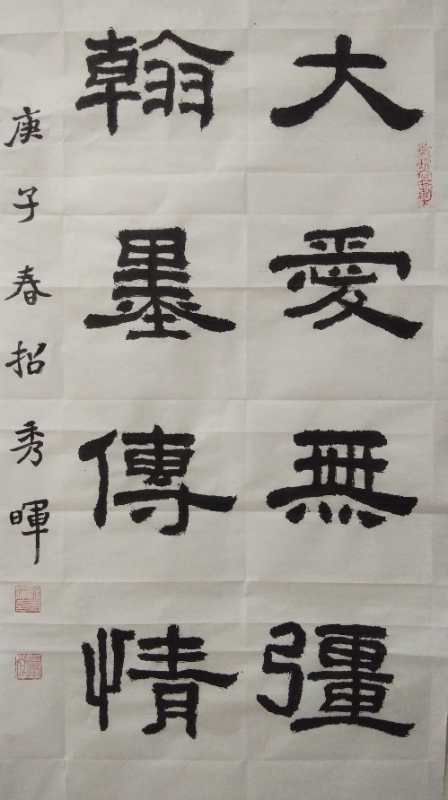 大愛無彊
翰墨傳情
庚子春招秀暉